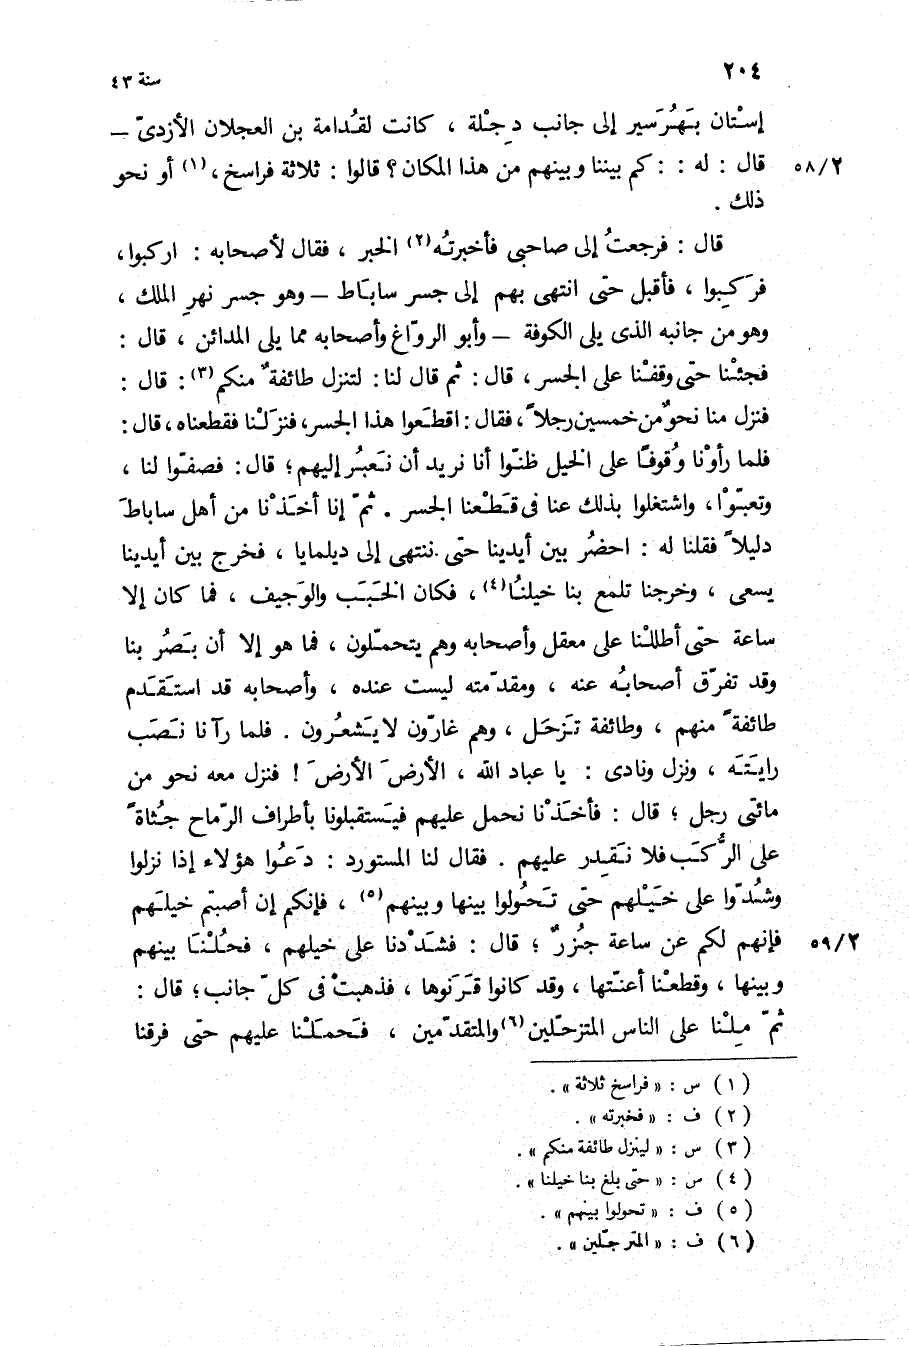 ٢٠٤
سنة ٤٣
إسْتان بَهُرَسير إلى جانب دِجْلة ، كانت لقُدامة بن العجلان الأزدىّ –
٥٨/٢
قال : له : : كم بيننا وبينهم من هذا المكان؟ قالوا : ثلاثة فراسخ،(١) أو نحو
ذلك .
قال : فرجعتُ إلى صاحبى فأخبرتُه(٢) الخبر ، فقال لأصحابه : اركبوا،
فرَكِبوا ، فأقبل حتّى انتهى بهم إلى جسر ساباط – وهو جسر نهرِ الملك ،
وهو من جانبه الذى يلى الكوفة – وأبو الروّاغ وأصحابه مما يلى المدائن ، قال :
فجئْنا حتّى وقفْنا على الجسر ، قال : ثم قال لنا : لتنزل طائفةٌ منكم(٣) : قال :
فنزل منا نحوٌ من خمسين رجلاً ، فقال : اقطَعوا هذا الجسر، فنزَلْنا فقطعناه ، قال :
فلما رأوْنا وُقوفًا على الخيل ظنّوا أنا نريد أن نَعبُر إليهم؛ قال : فصفّوا لنا ،
وتعبّوْا ، واشتغلوا بذلك عنا فى قَطْعنا الجسر . ثمّ إنا أخَذْنا من أهل ساباطَ
دليلاً فقلنا له : احضُر بين أيدينا حتّى ننتهى إلى ديلمايا ، فخرج بين أيدينا
يسعى ، وخرجنا تلمع بنا خيلنُا(٤) ، فكان الخَبَب والوَجيف ، فما كان إلا
ساعة حتّى أطللْنا على معقل وأصحابه وهم يتحمّلون ، فما هو إلا أن بَصُر بنا
وقد تفرّق أصحابُه عنه ، ومقدّمته ليست عنده ، وأصحابه قد استَقدَم
طائفةً منهم ، وطائفة تَزحَل ، وهم غارّون لا يَشعُرون . فلما رآنا نَصَب
رايَتَه ، ونزل ونادى : يا عباد الله ، الأرضَ الأرضَ ! فنزل معه نحو من
مائتى رجل ؛ قال : فأخَذْنا نحمل عليهم فيَستقبلونا بأطراف الرّماح جُثاةً
على الرُّكَب فلا نَقدِر عليهم . فقال لنا المستورد : دَعُوا هؤلاء إذا نزلوا
وشُدّوا على خَيْلهم حتّى تَحُولوا بينها وبينهم(٥) ، فإنكم إن أصبتم خيلَهم
٥٩/٢
فإنهم لكم عن ساعة جُزرٌ ؛ قال : فشَدَدْنا على خيلهم ، فحُلْنَا بينهم
وبينها ، وقطعْنا أعنّتها ، وقد كانوا قَرَنوها ، فذهبتْ فى كلّ جانب؛ قال :
ثمّ مِلْنا على الناس المتزحّلين(٦) والمتقدّمين ، فَحملَنْا عليهم حتّى فرقنا
(١) س : « فراسخ ثلاثة » .
(٢) ف : « فخبرته » .
(٣) س : « لينزل طائفة منكم » .
(٤) س : « حتى بلغ بنا خيلنا » .
(٥) ف : « تحولوا بينهم » .
(٦) ف : « المترجّلين » .